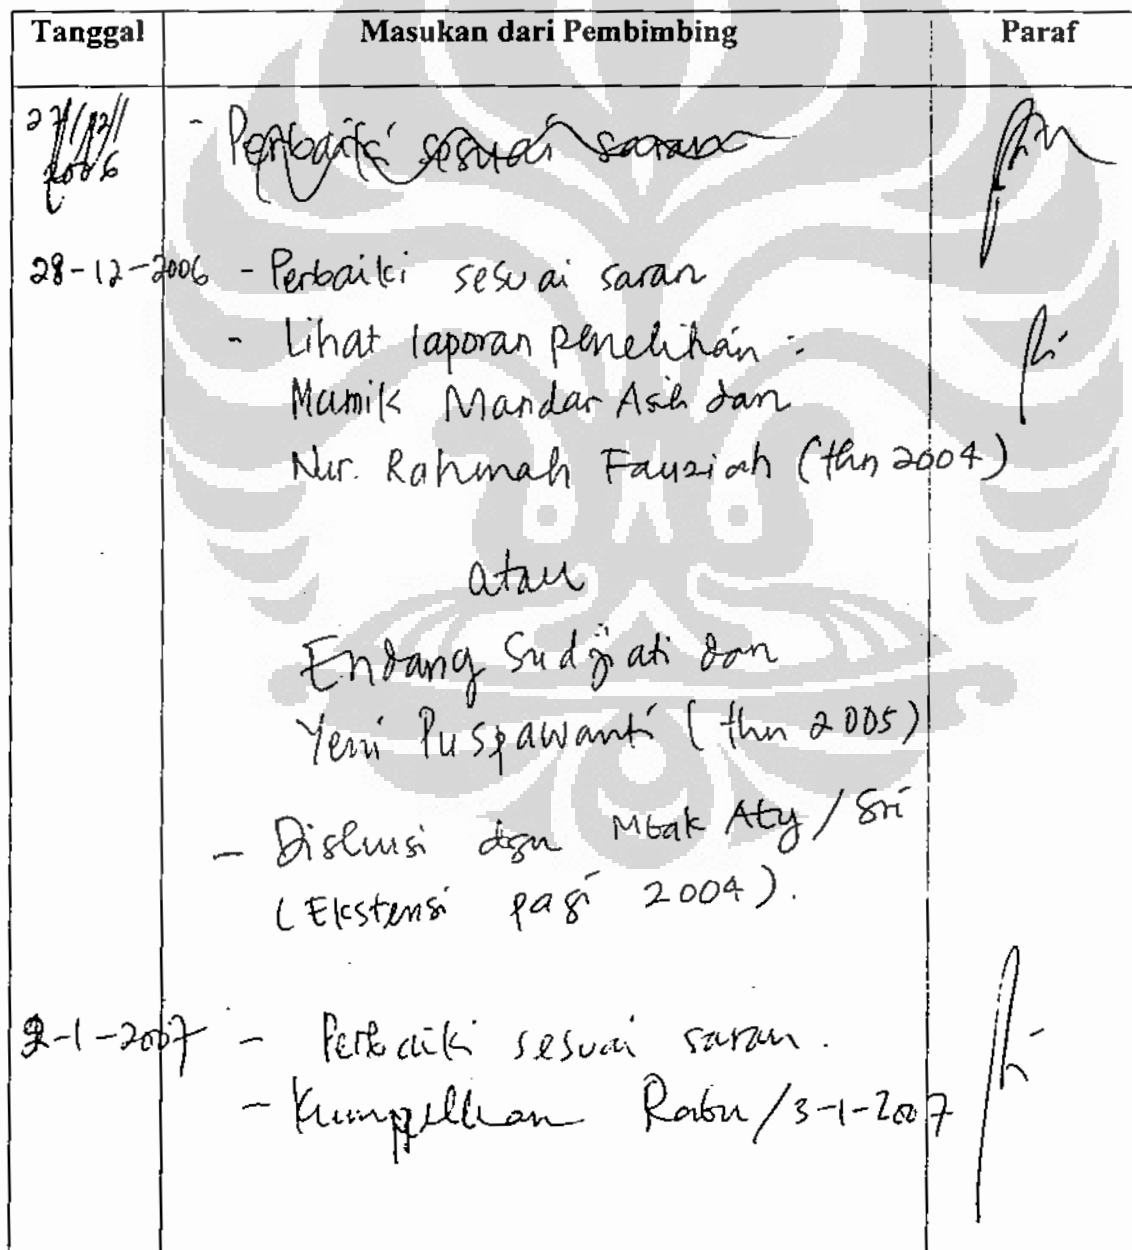 Tanggal Masukan dari Pembimbing Paraf
27/12/2006 - Perbaiki sesuai saran
28-12-2006 - Perbaiki sesuai saran
- Lihat laporan penelitian :
Mamik Mandar Asih dan
Nur. Rahmah Fauziah (thn 2004)
atau
Endang Sudjiati dan
Yeni Puspawanti (thn 2005)
- Diskusi dgn Mbak Aty / Sri
(Ekstensi pagi 2004).
2-1-2007 - Perbaiki sesuai saran.
- Kumpulkan Rabu / 3-1-2007